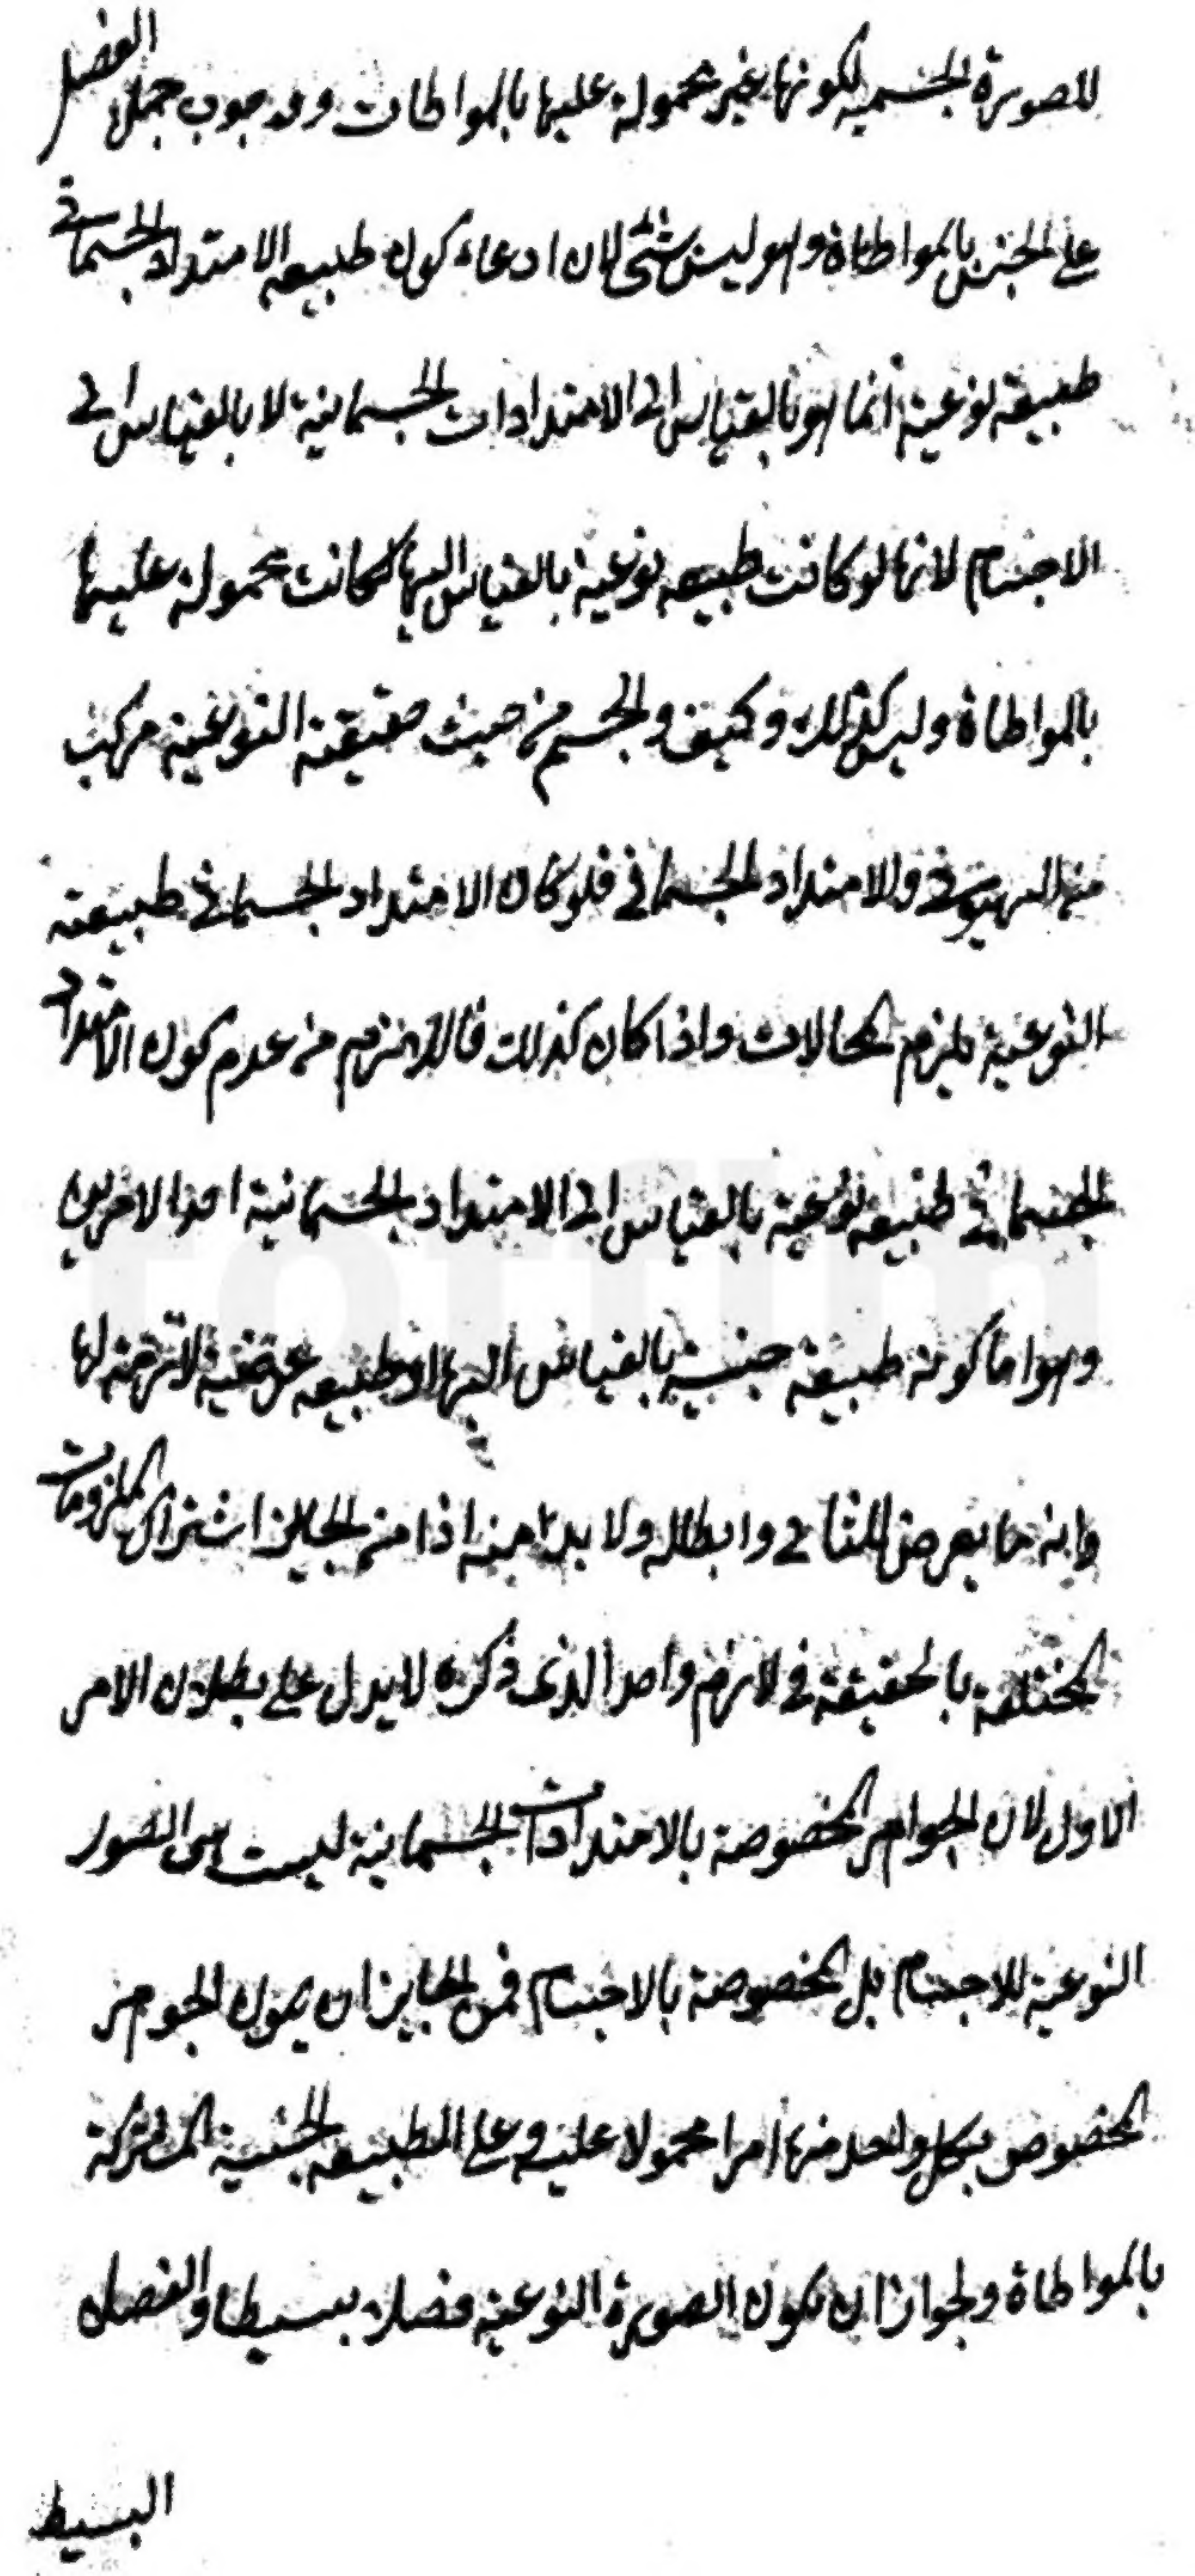 للصورة الجسمية لكونها غير محمولة عليها بالمواطات و وجوب حمل الفصل
على الجنس بالمواطاة وهو ليس بشئ لان ادعاء كون طبيعة الامتداد الجسمانى
طبيعة نوعية انما هو بالقياس الى الامتدادات الجسمانية لا بالقياس الى
الاجسام لانها لو كانت طبيعة نوعية بالقياس اليها لكانت محمولة عليها
بالمواطاة وليس كذلك وكيف والجسم من حيث حقيقته النوعية مركب
من الهيولى والامتداد الجسمانى فلو كان الامتداد الجسمانى طبيعته
النوعية يلزم المحالات واذا كان كذلك فاللازم من عدم كون الامتداد
الجسمانى طبيعة نوعية بالقياس الى الامتداد الجسمانية احد الامرين
وهو اما كونه طبيعة جنسية بالقياس اليها او طبيعة عرضية لازمة لها
وانه ما تعرض للثانى وابطاله ولا بد منه اذ من الجايز اشتراك الملزومات
المختلفة بالحقيقة فى لازم واحد الذى ذكره لا يدل على بطلان الامر
الاول لان الجواهر المخصوصة بالامتدادات الجسمانية ليست هى الصور
النوعية للاجسام بل المخصوصة بالاجسام فمن الجايز ان يكون الجوهر
المخصوص بكل واحد منها امرا محمولا عليه و على الطبيعة الجنسية المشتركة
بالمواطاة ولجواز ان يكون الصورة النوعية فصلا بسيطا والفصل
البسيط